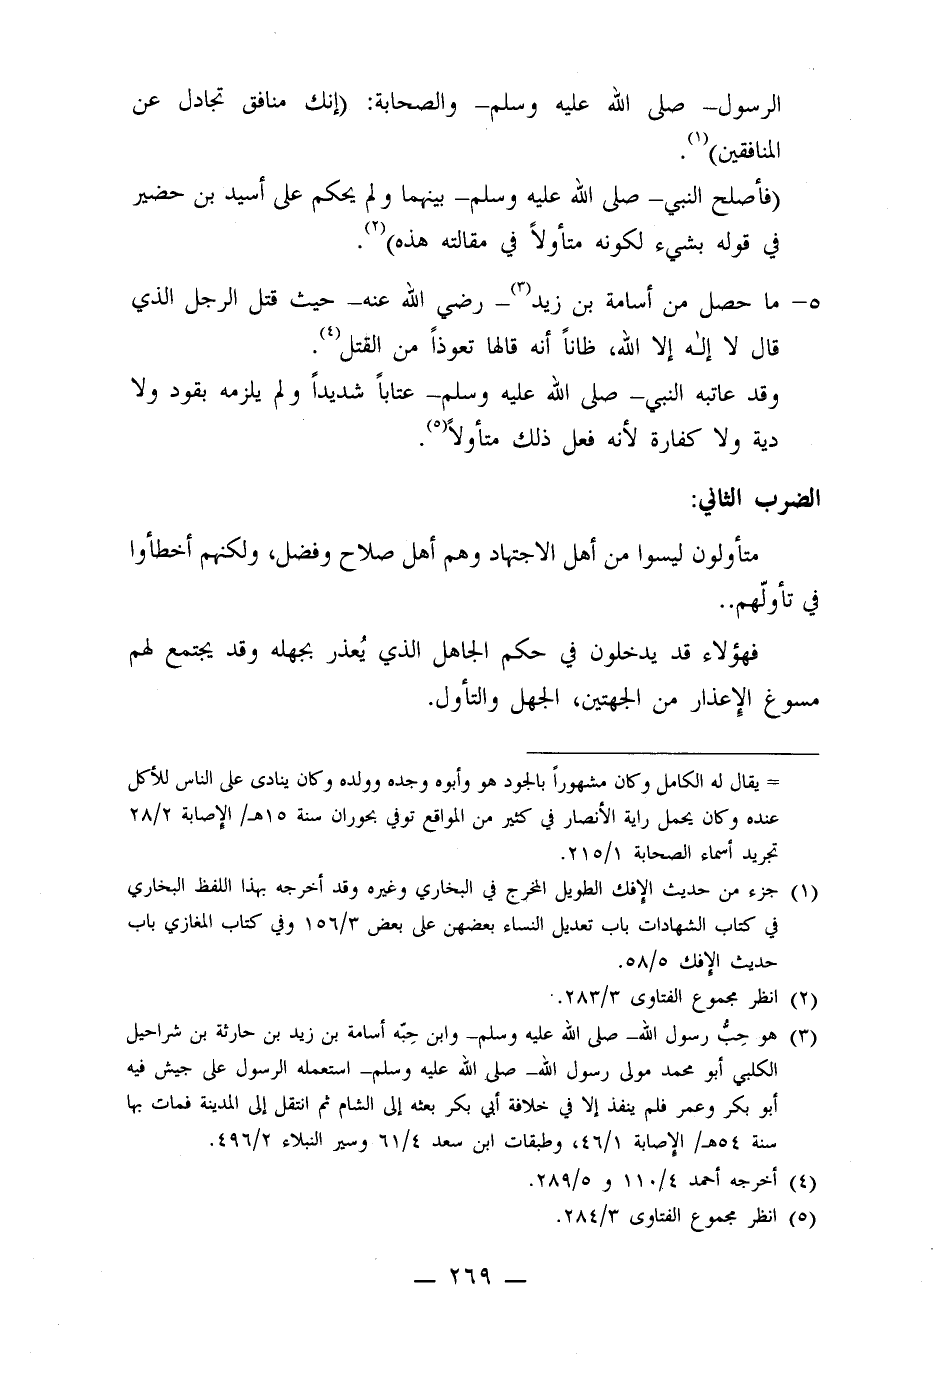 الرسول– صلى الله عليه وسلم– والصحابة: (إنك منافق تجادل عن
المنافقين)(١).
(فأصلح النبي– صلى الله عليه وسلم– بينهما ولم يحكم على أسيد بن حضير
في قوله بشيء لكونه متأولاً في مقالته هذه)(٢).
٥– ما حصل من أسامة بن زيد(٣)– رضي الله عنه– حيث قتل الرجل الذي
قال لا إلٰه إلا الله، ظاناً أنه قالها تعوذاً من القتل(٤).
وقد عاتبه النبي– صلى الله عليه وسلم– عتاباً شديداً ولم يلزمه بقود ولا
دية ولا كفارة لأنه فعل ذلك متأولاً(٥).
الضرب الثاني:
متأولون ليسوا من أهل الاجتهاد وهم أهل صلاح وفضل، ولكنهم أخطأوا
في تأولّهم..
فهؤلاء قد يدخلون في حكم الجاهل الذي يُعذر بجهله وقد يجتمع لهم
مسوغ الإعذار من الجهتين، الجهل والتأول.
= يقال له الكامل وكان مشهوراً بالجود هو وأبوه وجده وولده وكان ينادى على الناس للأكل
عنده وكان يحمل راية الأنصار في كثير من المواقع توفي بحوران سنة ١٥هـ/ الإصابة ٢٨/٢
تجريد أسماء الصحابة ٢١٥/١.
(١) جزء من حديث الإفك الطويل المخرج في البخاري وغيره وقد أخرجه بهذا اللفظ البخاري
في كتاب الشهادات باب تعديل النساء بعضهن على بعض ١٥٦/٣ وفي كتاب المغازي باب
حديث الإفك ٥٨/٥.
(٢) انظر مجموع الفتاوى ٢٨٣/٣.
(٣) هو حِبُّ رسول الله– صلى الله عليه وسلم– وابن حِبّه أسامة بن زيد بن حارثة بن شراحيل
الكلبي أبو محمد مولى رسول الله– صلى الله عليه وسلم– استعمله الرسول على جيش فيه
أبو بكر وعمر فلم ينفذ إلا في خلافة أبي بكر بعثه إلى الشام ثم انتقل إلى المدينة فمات بها
سنة ٥٤هـ/ الإصابة ٤٦/١، وطبقات ابن سعد ٦١/٤ وسير النبلاء ٤٩٦/٢.
(٤) أخرجه أحمد ١١٠/٤ و ٢٨٩/٥.
(٥) انظر مجموع الفتاوى ٢٨٤/٣.
— ٢٦٩ —